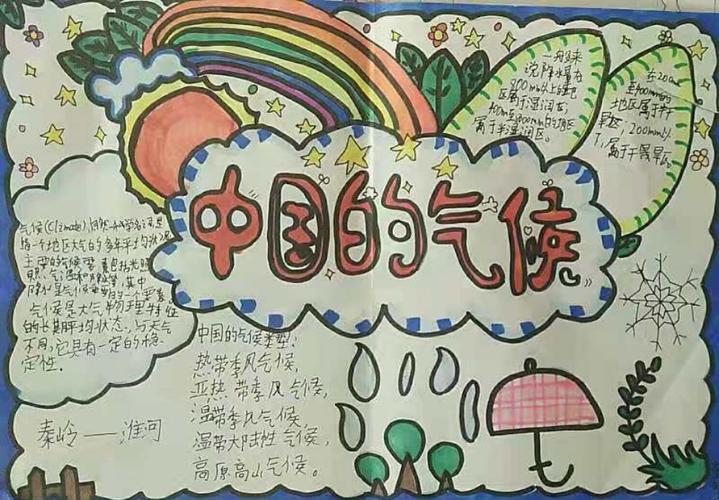 中国的气候
一般来
说降水量在
800mm以上的地
区属于湿润区，
400mm至800mm的地区
属于半湿润区。
在200m
至400mm的
地区属于半
干旱区，200mm以
下，属于干旱区。
气候(Climate)
指一个地区大气的多年平均状况
主要的气候要素包括光照
气温和降水等，其中
降水是气候重要的一个要素
气候是大气物理特征
的长期平均状态，与天气
不同，它具有一定的稳
定性。
中国的气候类型：
热带季风气候，
亚热带季风气候，
温带季风气候，
温带大陆性气候，
高原高山气候。
秦岭——淮河